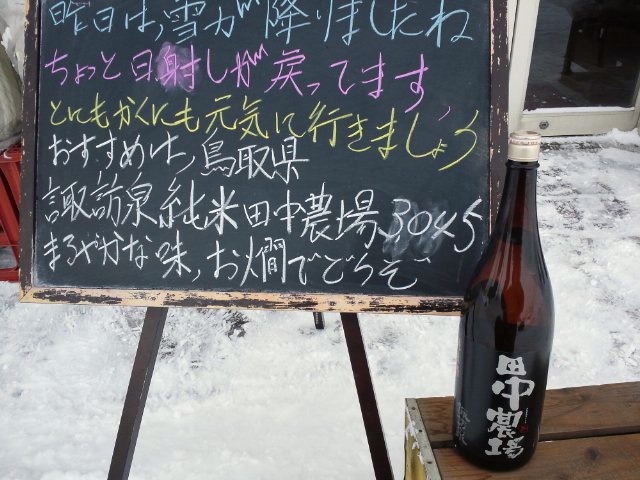 昨日は、雪が降りましたね
ちょっと日射しが戻ってます、
とにもかくにも元気に行きましょう
おすすめは、鳥取県
諏訪泉純米田中農場3045
まろやかな味、お燗でどうぞ
田中農場